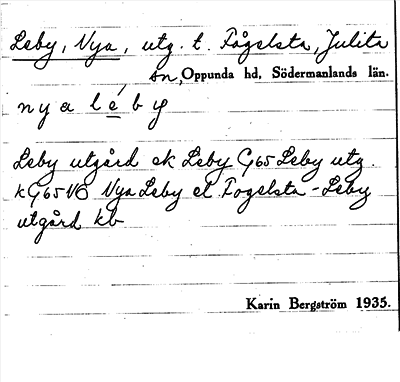 Leby, Nya, utg. t. Fågelsta, Julita
sn, Oppunda hd, Södermanlands län.
nya lé by
Leby utgård ek Leby G65 Leby utg.
kG65 Nya Leby el. Fogelsta-Leby
utgård kb
Karin Bergström 1935.